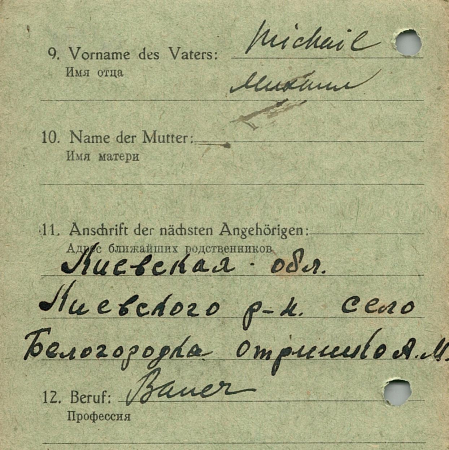 Michail
9. Vorname des Vaters:
Имя отца
Михаил
10. Name der Mutter:
Имя матери
11. Anschrift der nächsten Angehörigen:
Адрес ближайших родственников
Киевская обл.
Киевского р-н. село
Белогородка А.М.
12. Beruf: Bauer
Профессия